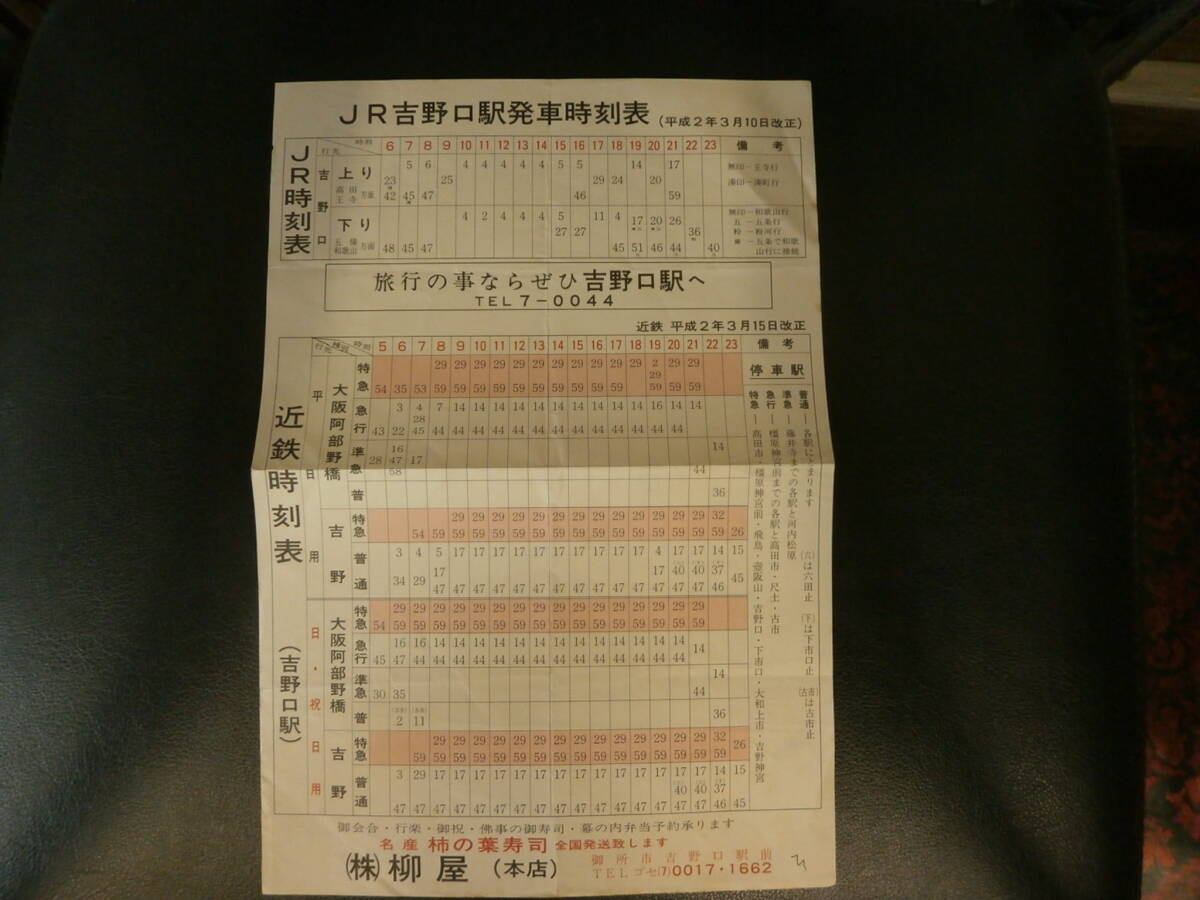 JR吉野口駅発車時刻表 (平成2年3月10日改正)
JR時刻表
吉野口
行先 時刻 6 7 8 9 10 11 12 13 14 15 16 17 18 19 20 21 22 23 備考
上り 高田 王寺 方面
5 6 4 4 4 4 4 5 5 14 17
23 25 29 24 20
42 45 47 46 59
無印―王寺行
湊印―湊町行
下り 五條 和歌山 方面
4 2 4 4 4 5 11 4 17 20 26
27 27 36
48 45 47 45 51 46 44 40
無印―和歌山行
五―五条行
粉―粉河行
―五条で和歌
山行に接続
旅行の事ならぜひ吉野口駅へ
TEL7-0044
近鉄 平成2年3月15日改正
近鉄時刻表
(吉野口駅)
行先 種別 時刻 5 6 7 8 9 10 11 12 13 14 15 16 17 18 19 20 21 22 23 備考
平日用
大阪阿部野橋
特急
29 29 29 29 29 29 29 29 29 29 29 2 29 29
29
54 35 53 59 59 59 59 59 59 59 59 59 59 59 59 59
急行
3 4 7 14 14 14 14 14 14 14 14 14 14 14 16 14 14
28
43 22 45 44 44 44 44 44 44 44 44 44 44 44 44 44 44
準急
16 14
28 47 17
58 44
普
36
吉野
特急
29 29 29 29 29 29 29 29 29 29 29 29 29 32
54 59 59 59 59 59 59 59 59 59 59 59 59 59 59 26
普通
3 4 5 17 17 17 17 17 17 17 17 17 17 4 17 17 14 15
34 29 17 17 40 40 37
47 47 47 47 47 47 47 47 47 47 47 47 47 47 46 45
日・祝日用
大阪阿部野橋
特急
29 29 29 29 29 29 29 29 29 29 29 29 29 29 29 29
54 59 59 59 59 59 59 59 59 59 59 59 59 59 59 59 59
急行
16 16 14 14 14 14 14 14 14 14 14 14 14 14 14 14
45 47 44 44 44 44 44 44 44 44 44 44 44 44 44 44
準急
14
30 35 44
普
2 11 36
吉野
特急
29 29 29 29 29 29 29 29 29 29 29 29 29 29 32
59 59 59 59 59 59 59 59 59 59 59 59 59 59 59 26
普通
3 29 17 17 17 17 17 17 17 17 17 17 17 17 17 17 14 15
40 40 37
47 47 47 47 47 47 47 47 47 47 47 47 47 47 47 47 46 45
停車駅
普通―各駅にとまります
準急―藤井寺までの各駅と河内松原
急行―橿原神宮前までの各駅と高田市・尺土・古市
特急―高田市・橿原神宮前・飛鳥・壺阪山・吉野口・下市口・大和上市・吉野神宮
(六)は六田止
(下)は下市口止
(古市)は古市止
御会合・行楽・御祝・佛事の御寿司・幕の内弁当予約承ります
名産 柿の葉寿司 全国発送致します
(株)柳屋(本店)
御所市吉野口駅前
TELゴセ(7)0017・1662